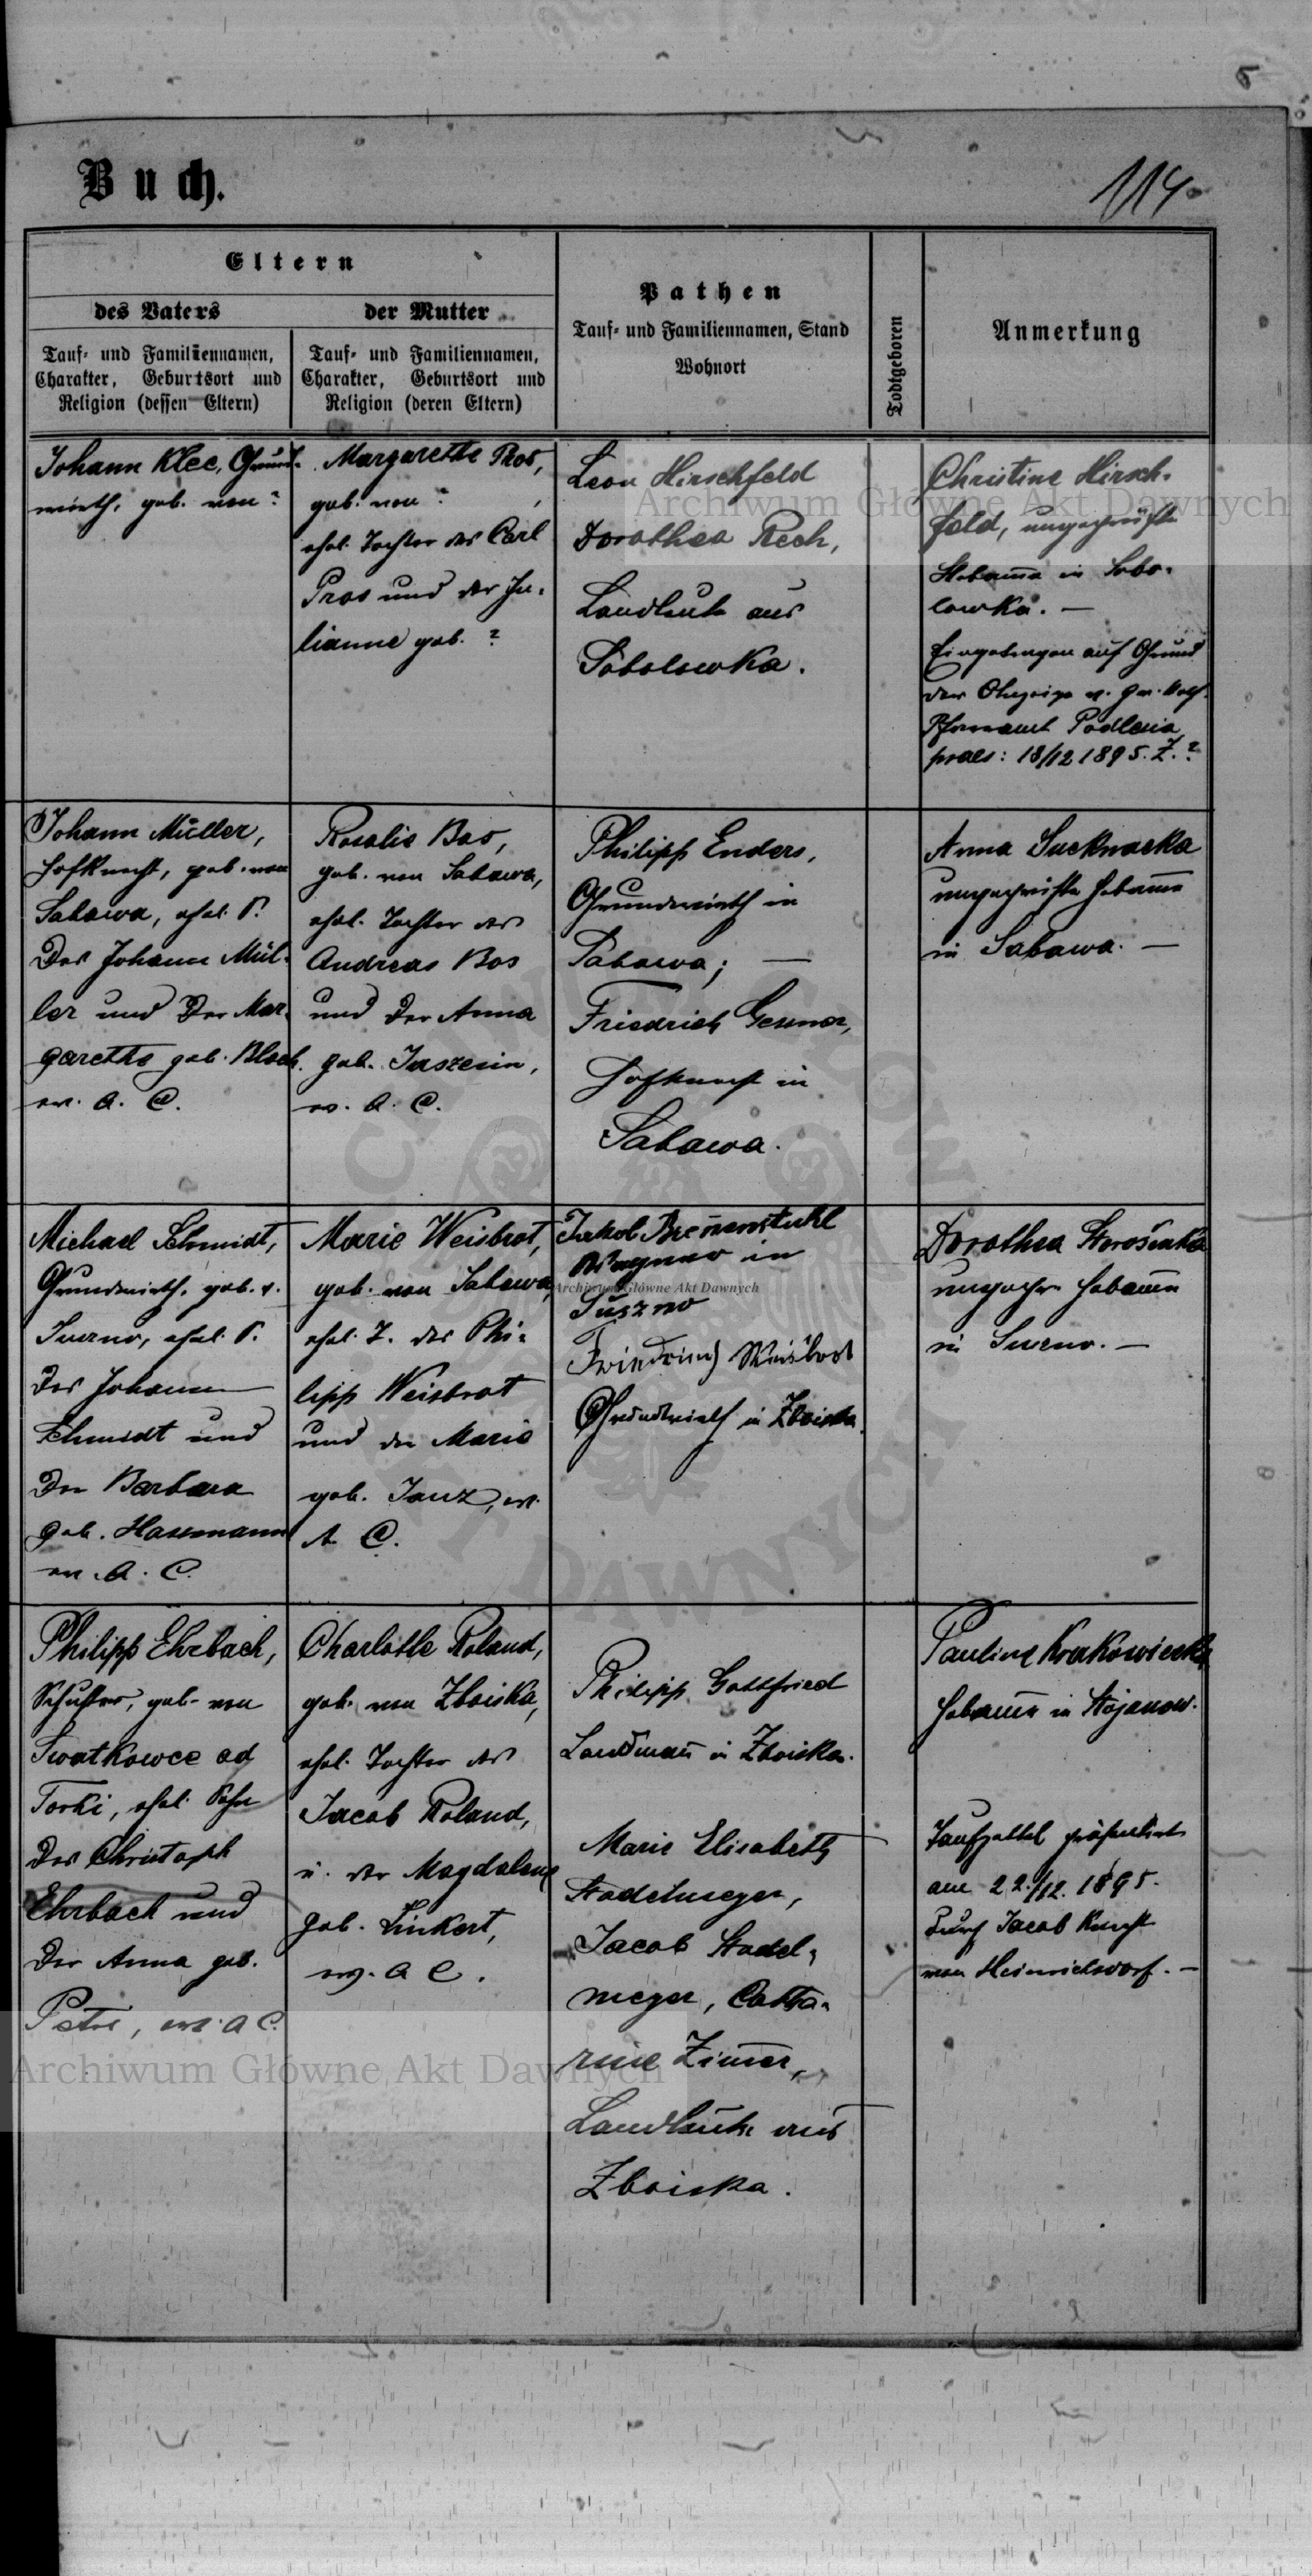 5
Buch.
114.
Eltern
des Vaters
der Mutter
Tauf- und Familiennamen,
Charakter, Geburtsort und
Religion (dessen Eltern)
Tauf- und Familiennamen,
Charakter, Geburtsort und
Religion (deren Eltern)
Pathen
Tauf- und Familiennamen, Stand
Wohnort
Todtgeboren
Anmerkung
Johann Klee, Grund-
wirth, geb. von ?
Margarethe Pros,
geb. von ?
ehel. Tochter des Carl
Pros und der Ju-
lianne geb. ?
Leon Hirschfeld
Dorothea Rech,
Landleute aus
Sobolowka.
Christine Hirsch-
feld, ungeprüfte
Hebamme in Sobo-
lowka. —
Eingetragen auf Grund
der Anzeige v. gr. kath.
Pfarramt Podlesia
praes: 18/12 1895. Z. ?
Johann Müller,
Hofknecht, geb. von
Sabawa, ehel. S.
des Johann Mül-
ler und der Mar-
garethe geb. Bloch.
ev. A. C.
Rosalie Bos,
geb. von Sabawa,
ehel. Tochter des
Andreas Bos
und der Anna
geb. Jaszenin,
ev. A. C.
Philipp Enders,
Grundwirth in
Sabawa; —
Friedrich Gessner,
Hofknecht in
Sabawa.
Anna Sucknacka
ungeprüfte Hebamme
in Sabawa. —
Michael Schmidt,
Grundwirth, geb. v.
Suszno, ehel. S.
des Johann
Schmidt und
der Barbara
geb. Hassmann
ev. A. C.
Marie Weisbrot,
geb. von Sabawa,
ehel. T. des Phi-
lipp Weisbrot
und der Marie
geb. Janz, ev.
A. C.
Jakob Breñenstuhl
Wagner in
Suszno
Friedrich Weisbrot
Grundwirth in Zboiska.
Dorothea
ungepr. Hebamme
in Suszno. —
Philipp Ehrbach,
Schuster, geb. von
Swatkowce ad
Torki, ehel. Sohn
des Christoph
Ehrbach und
der Anna geb.
Petri, ev. A C.
Charlotte Roland,
geb. von Zboiska,
ehel. Tochter des
Jacob Roland,
u. der Magdalena
geb. Linkert,
ev. A C.
Philipp Gottfried
Landmañ in Zboiska.
Marie Elisabeth
Stadelmeyer,
Jacob Stadel-
meyer, Catha-
rine Zim̄er,
Landleute aus
Zboiska.
Pauline Krakowiecka,
Hebam̄e in Stojanow.
Taufzettel präsentirt
am 22./12. 1895.
durch Jacob Knecht
von Heinrichsdorf. —
Archiwum Główne Akt Dawnych
Archiwum Główne Akt Dawnych
Archiwum Główne Akt Dawnych